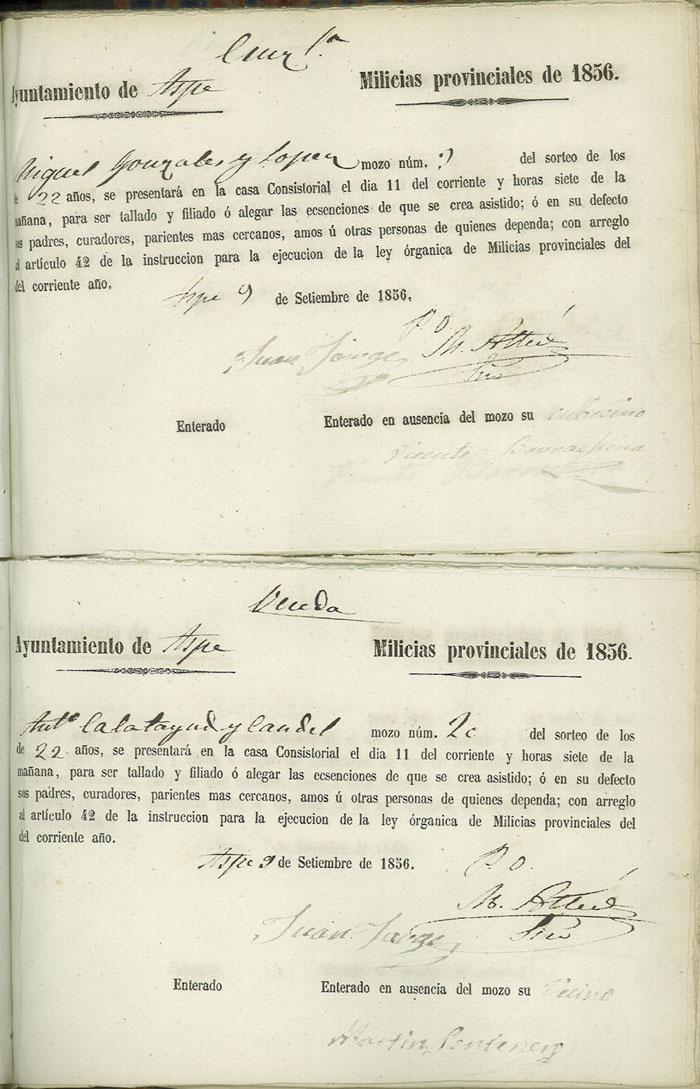 Cruz 1ª
Ayuntamiento de Aspe
Milicias provinciales de 1856.
Miguel Gonzales y Lopez mozo núm. 9 del sorteo de los
de 22 años, se presentará en la casa Consistorial el dia 11 del corriente y horas siete de la
mañana, para ser tallado y filiado ó alegar las ecsenciones de que se crea asistido; ó en su defecto
sus padres, curadores, parientes mas cercanos, amos ú otras personas de quienes dependa; con arreglo
al artículo 42 de la instruccion para la ejecucion de la ley órganica de Milicias provinciales del
del corriente año.
Aspe 9 de Setiembre de 1856.
P O
Juan Jorge M. Alted
Srio
Enterado Enterado en ausencia del mozo su
Vicente
Vereda
Ayuntamiento de Aspe
Milicias provinciales de 1856.
Antº Calatayud y Candel mozo núm. 20 del sorteo de los
de 22 años, se presentará en la casa Consistorial el dia 11 del corriente y horas siete de la
mañana, para ser tallado y filiado ó alegar las ecsenciones de que se crea asistido; ó en su defecto
sus padres, curadores, parientes mas cercanos, amos ú otras personas de quienes dependa; con arreglo
al artículo 42 de la instruccion para la ejecucion de la ley órganica de Milicias provinciales del
del corriente año.
Aspe 9 de Setiembre de 1856.
P O.
M. Alted
Juan Jorge Srio
Enterado Enterado en ausencia del mozo su Vecino
Martin